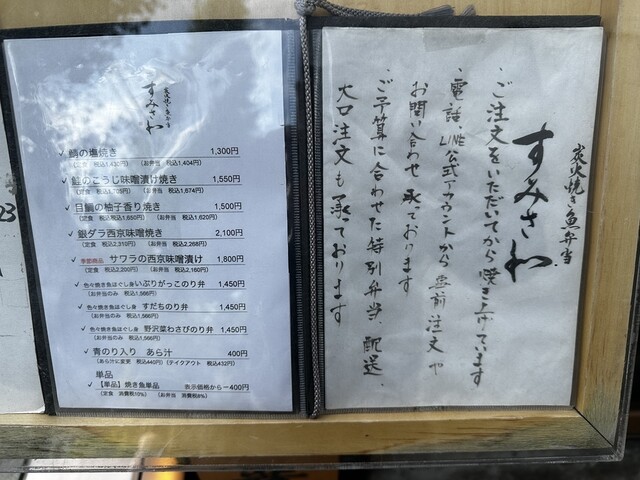 炭火焼き魚弁当
すみさわ
✓ 鯖の塩焼き 1,300円
(定食 税込1,430円) (お弁当 税込1,404円)
✓ 鮭のこうじ味噌漬け焼き 1,550円
(定食 税込1,705円) (お弁当 税込1,674円)
✓ 目鯛の柚子香り焼き 1,500円
(定食 税込1,650円) (お弁当 税込1,620円)
✓ 銀ダラ西京味噌焼き 2,100円
(定食 税込2,310円) (お弁当 税込2,268円)
✓ 季節商品 サワラの西京味噌漬け 1,800円
(定食 税込2,200円) (お弁当 税込2,160円)
✓ 色々焼き魚ほぐし身 いぶりがっこのり弁 1,450円
(お弁当のみ 税込1,566円)
✓ 色々焼き魚ほぐし身 すだちのり弁 1,450円
(お弁当のみ 税込1,566円)
✓ 色々焼き魚ほぐし身 野沢菜わさびのり弁 1,450円
(お弁当のみ 税込1,566円)
✓ 青のり入り あら汁 400円
(あら汁に変更 税込440円) (テイクアウト 税込432円)
単品
✓ 【単品】焼き魚単品 表示価格から−400円
(定食 消費税10%) (お弁当 消費税8%)
炭火焼き魚弁当
すみさわ
・ご注文をいただいてから焼き上げています
・電話、LINE公式アカウントから事前注文や
お問い合わせ承っております
・ご予算に合わせた特別弁当、配送、
大口注文も承っております
23